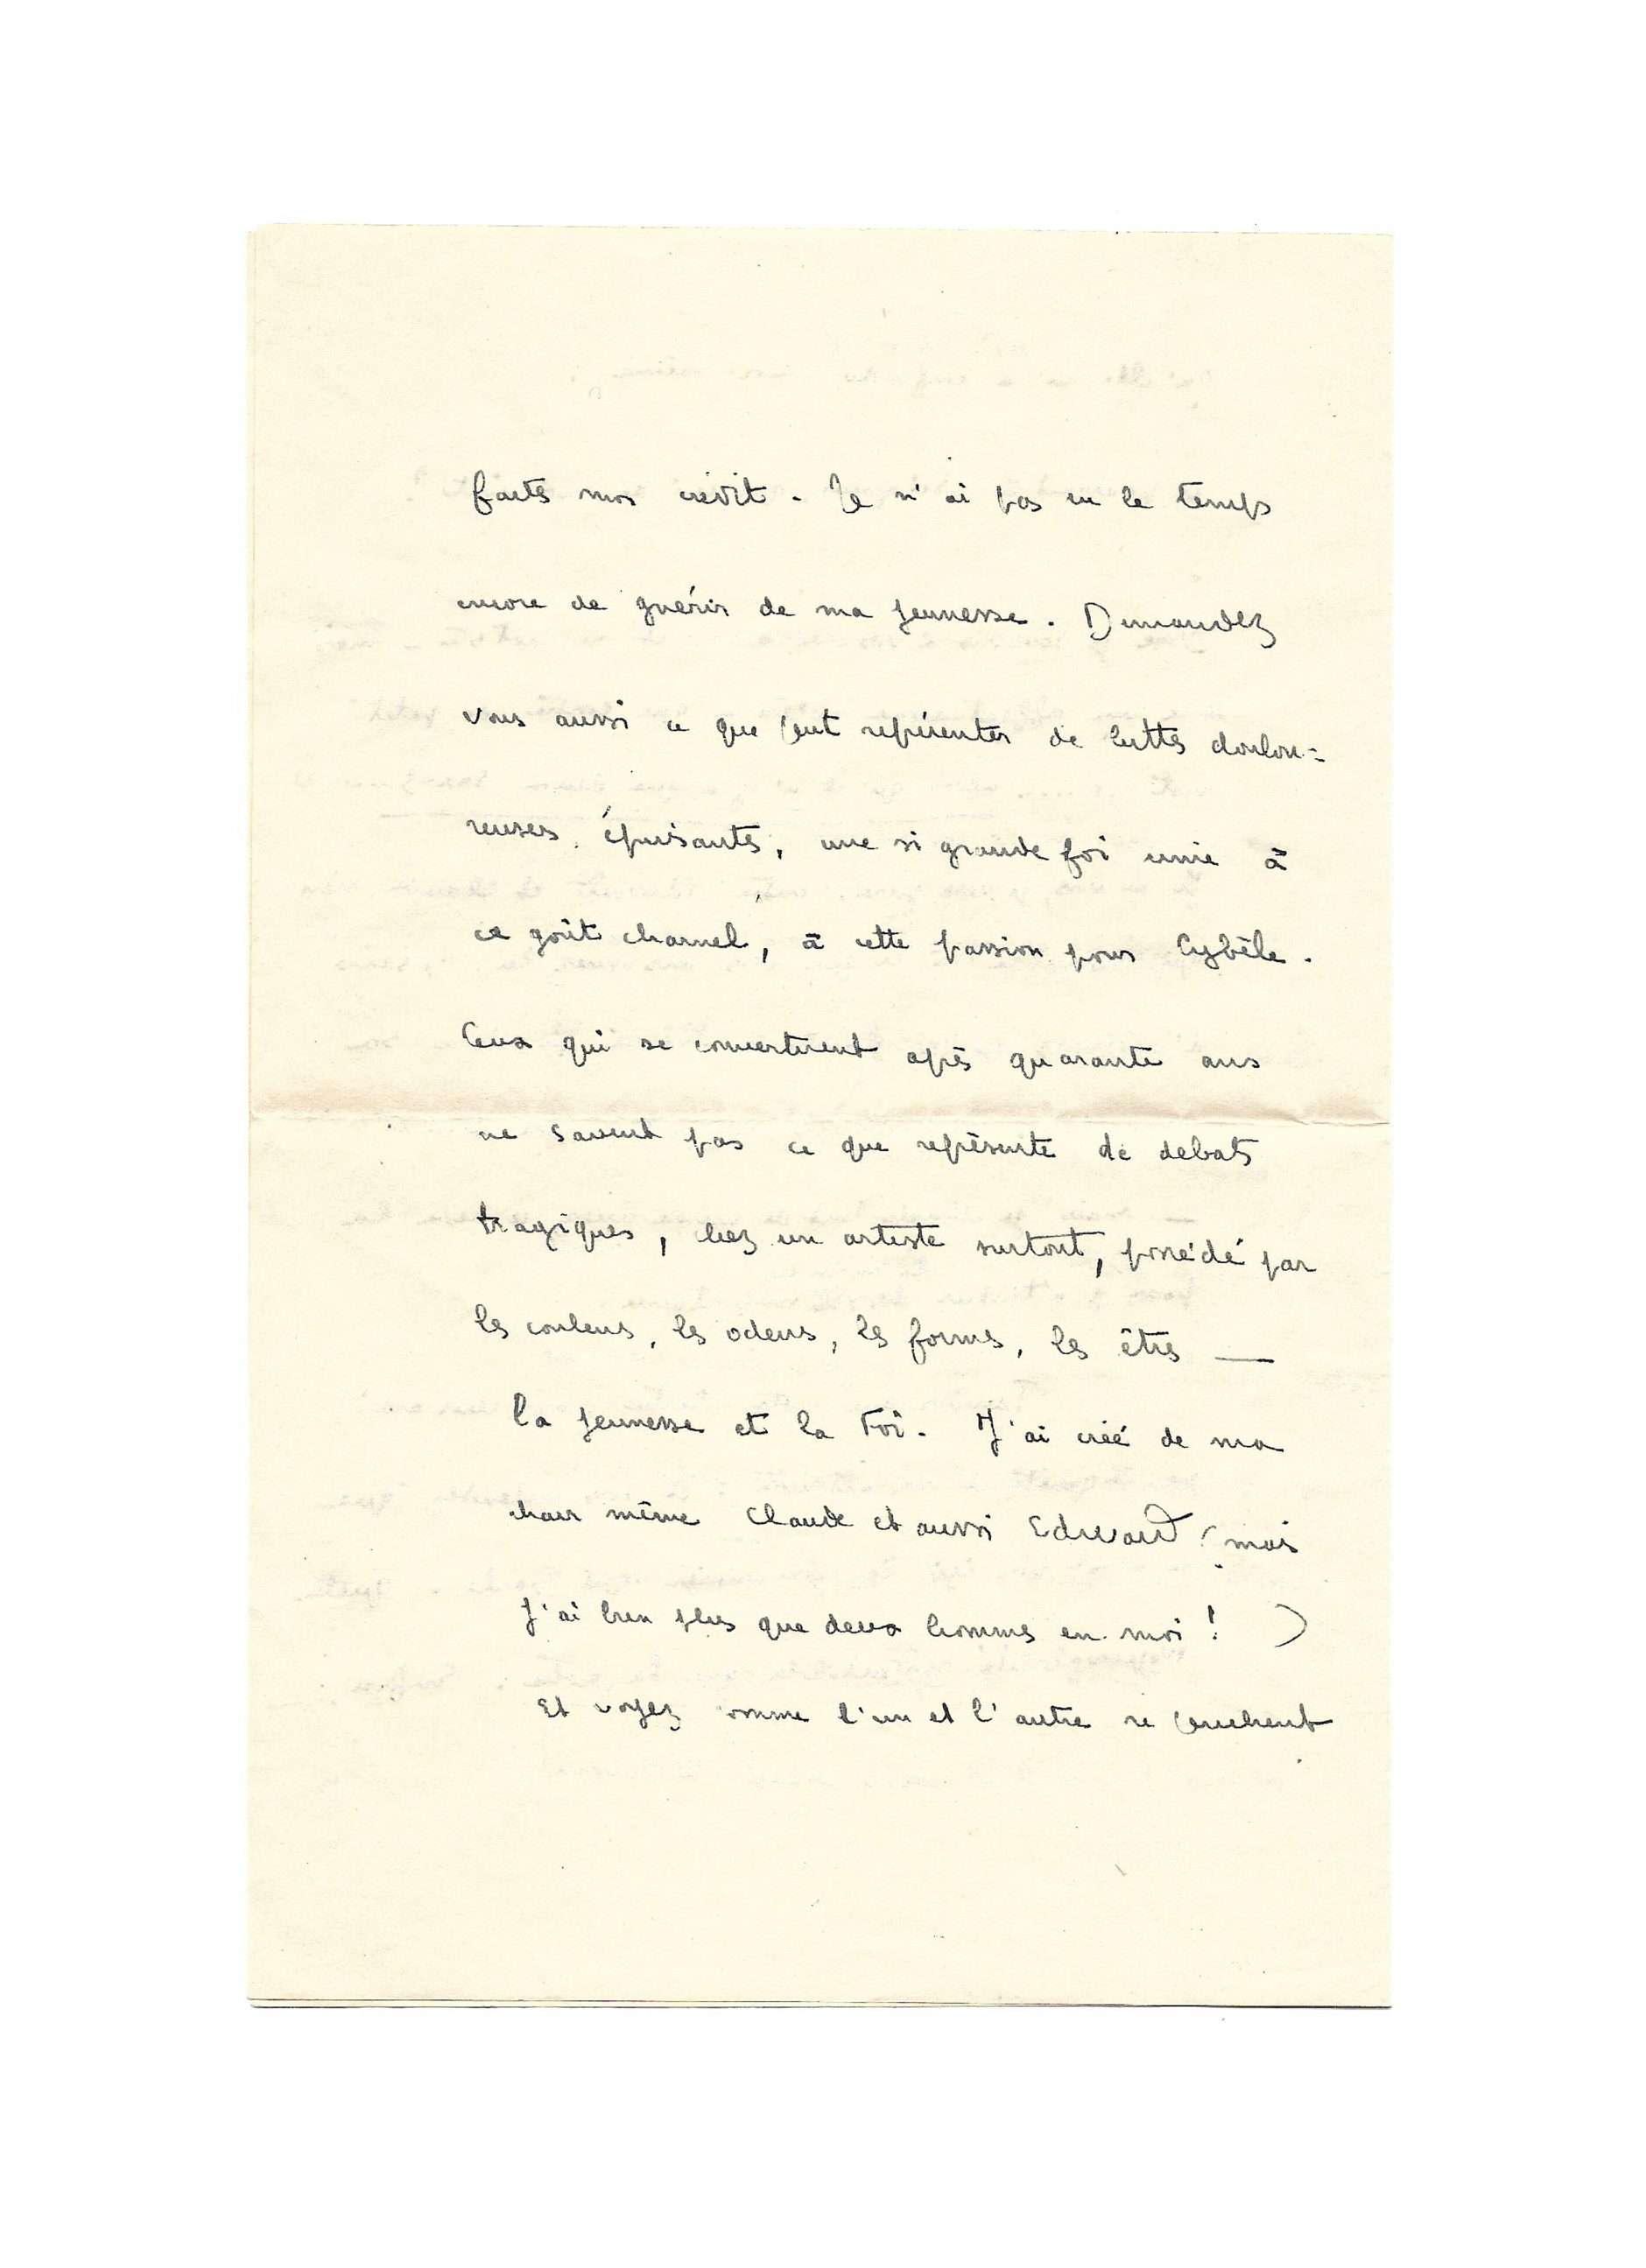 faites moi crédit. Je n'ai pas eu le temps
encore de guérir de ma jeunesse. Demandez
vous aussi ce que peut représenter de luttes doulou=
reuses, épuisantes, une si grande foi unie à
ce goût charnel, à cette passion pour Cybèle.
Ceux qui se convertirent après quarante ans
ne savent pas ce que représente de débats
tragiques, chez un artiste surtout, possédé par
les couleurs, les odeurs, les formes, les êtres —
la jeunesse et la Foi. J'ai créé de ma
chair même Claude et aussi Edward (mais
j'ai bien plus que deux hommes en moi! )
Et voyez comme l'un et l'autre se cherchent